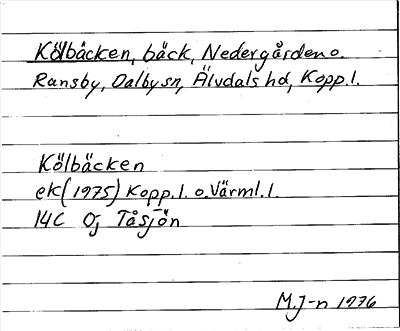 Kölbäcken, bäck, Nedergården o.
Ransby, Dalby sn, Älvdals hd, Kopp. l.
Kölbäcken
ek (1975) Kopp. l. o. Värml. l.
14C 0j Tåsjön
M.J-n 1976